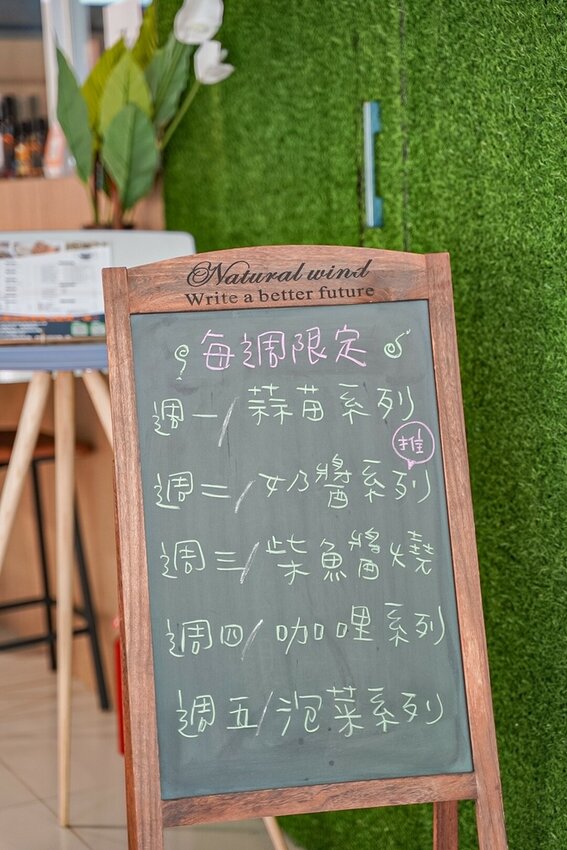 Natural wind
Write a better future
每週限定
週一/蒜苗系列
推
週二/奶醬系列
週三/柴魚醬燒
週四/咖哩系列
週五/泡菜系列